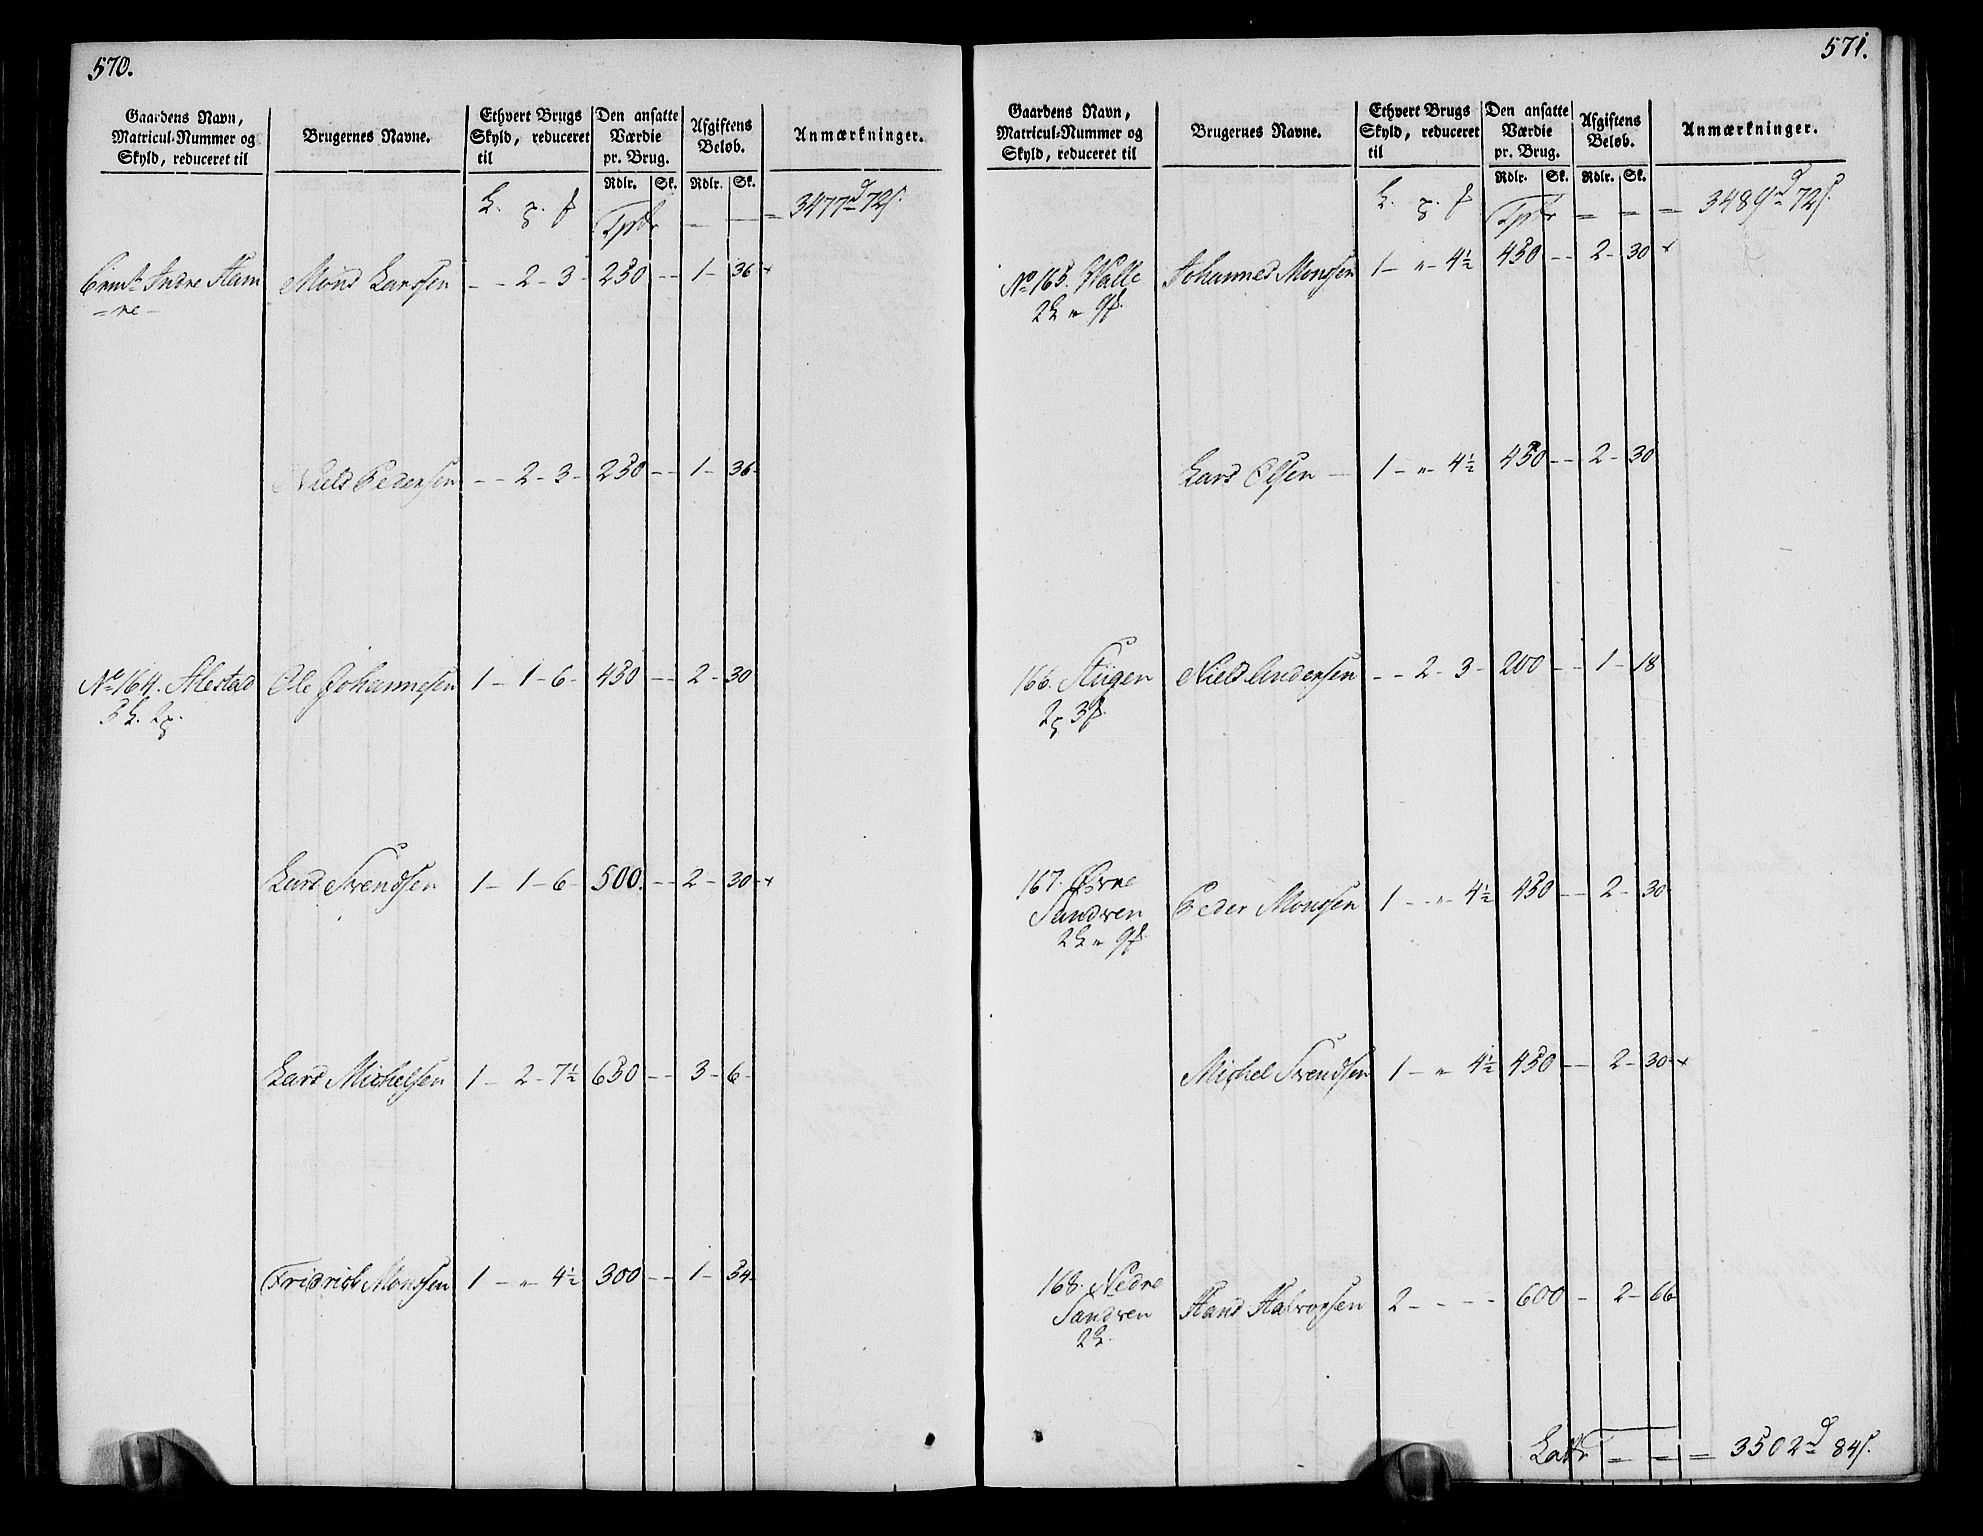 570.
Gaardens Navn, Matricul-Nummer og Skyld, reduceret til | Brugernes Navne. | Ethvert Brugs Skyld, reduceret til | Den ansatte Værdie pr. Brug. Rdlr. Sk. | Afgiftens Beløb. Rdlr. Sk. | Anmærkninger.
Tpt = 3477d 72s.
Indre Ham=re Mons Larssen - - 2 - 3 - 250 - - 1 - 36
Niels Pedersen - - 2 - 3 - 250 - - 1 - 36
No 164. Alestad Ole Johannesen 1 - 1 - 6 - 450 - - 2 - 30
Lars Svendsen 1 - 1 - 6 - 500. - - 2 - 30
Lars Michelsen 1 - 2 - 7½ 650 - - 3 - 6 -
Fridrich Monssen 1 - „ - 4½ 300 - - 1 - 54
571.
Gaardens Navn, Matricul-Nummer og Skyld, reduceret til | Brugernes Navne. | Ethvert Brugs Skyld, reduceret til | Den ansatte Værdie pr. Brug. Rdlr. Sk. | Afgiftens Beløb. Rdlr. Sk. | Anmærkninger.
Tpt = = = 3489d 72s.
No 165. Walle Johannes Monsen 1 - „ - 4½ 450 - - 2 - 30
Lars Olsen 1 - „ - 4½ 450 - - 2 - 30
166. Niels Andersen - - 2 - 3 - 200 - - 1 - 18
167. Øvre Sandven Peder Monssen 1 - „ - 4½ 450 - - 2 - 30
Michel Svendsen 1 - „ - 4½ 450 - - 2 - 30
168. Nedre Sandven Hans Halvorsen 2 - - - - 600 - 2 - 66
Latr = = = 3502d 84s.